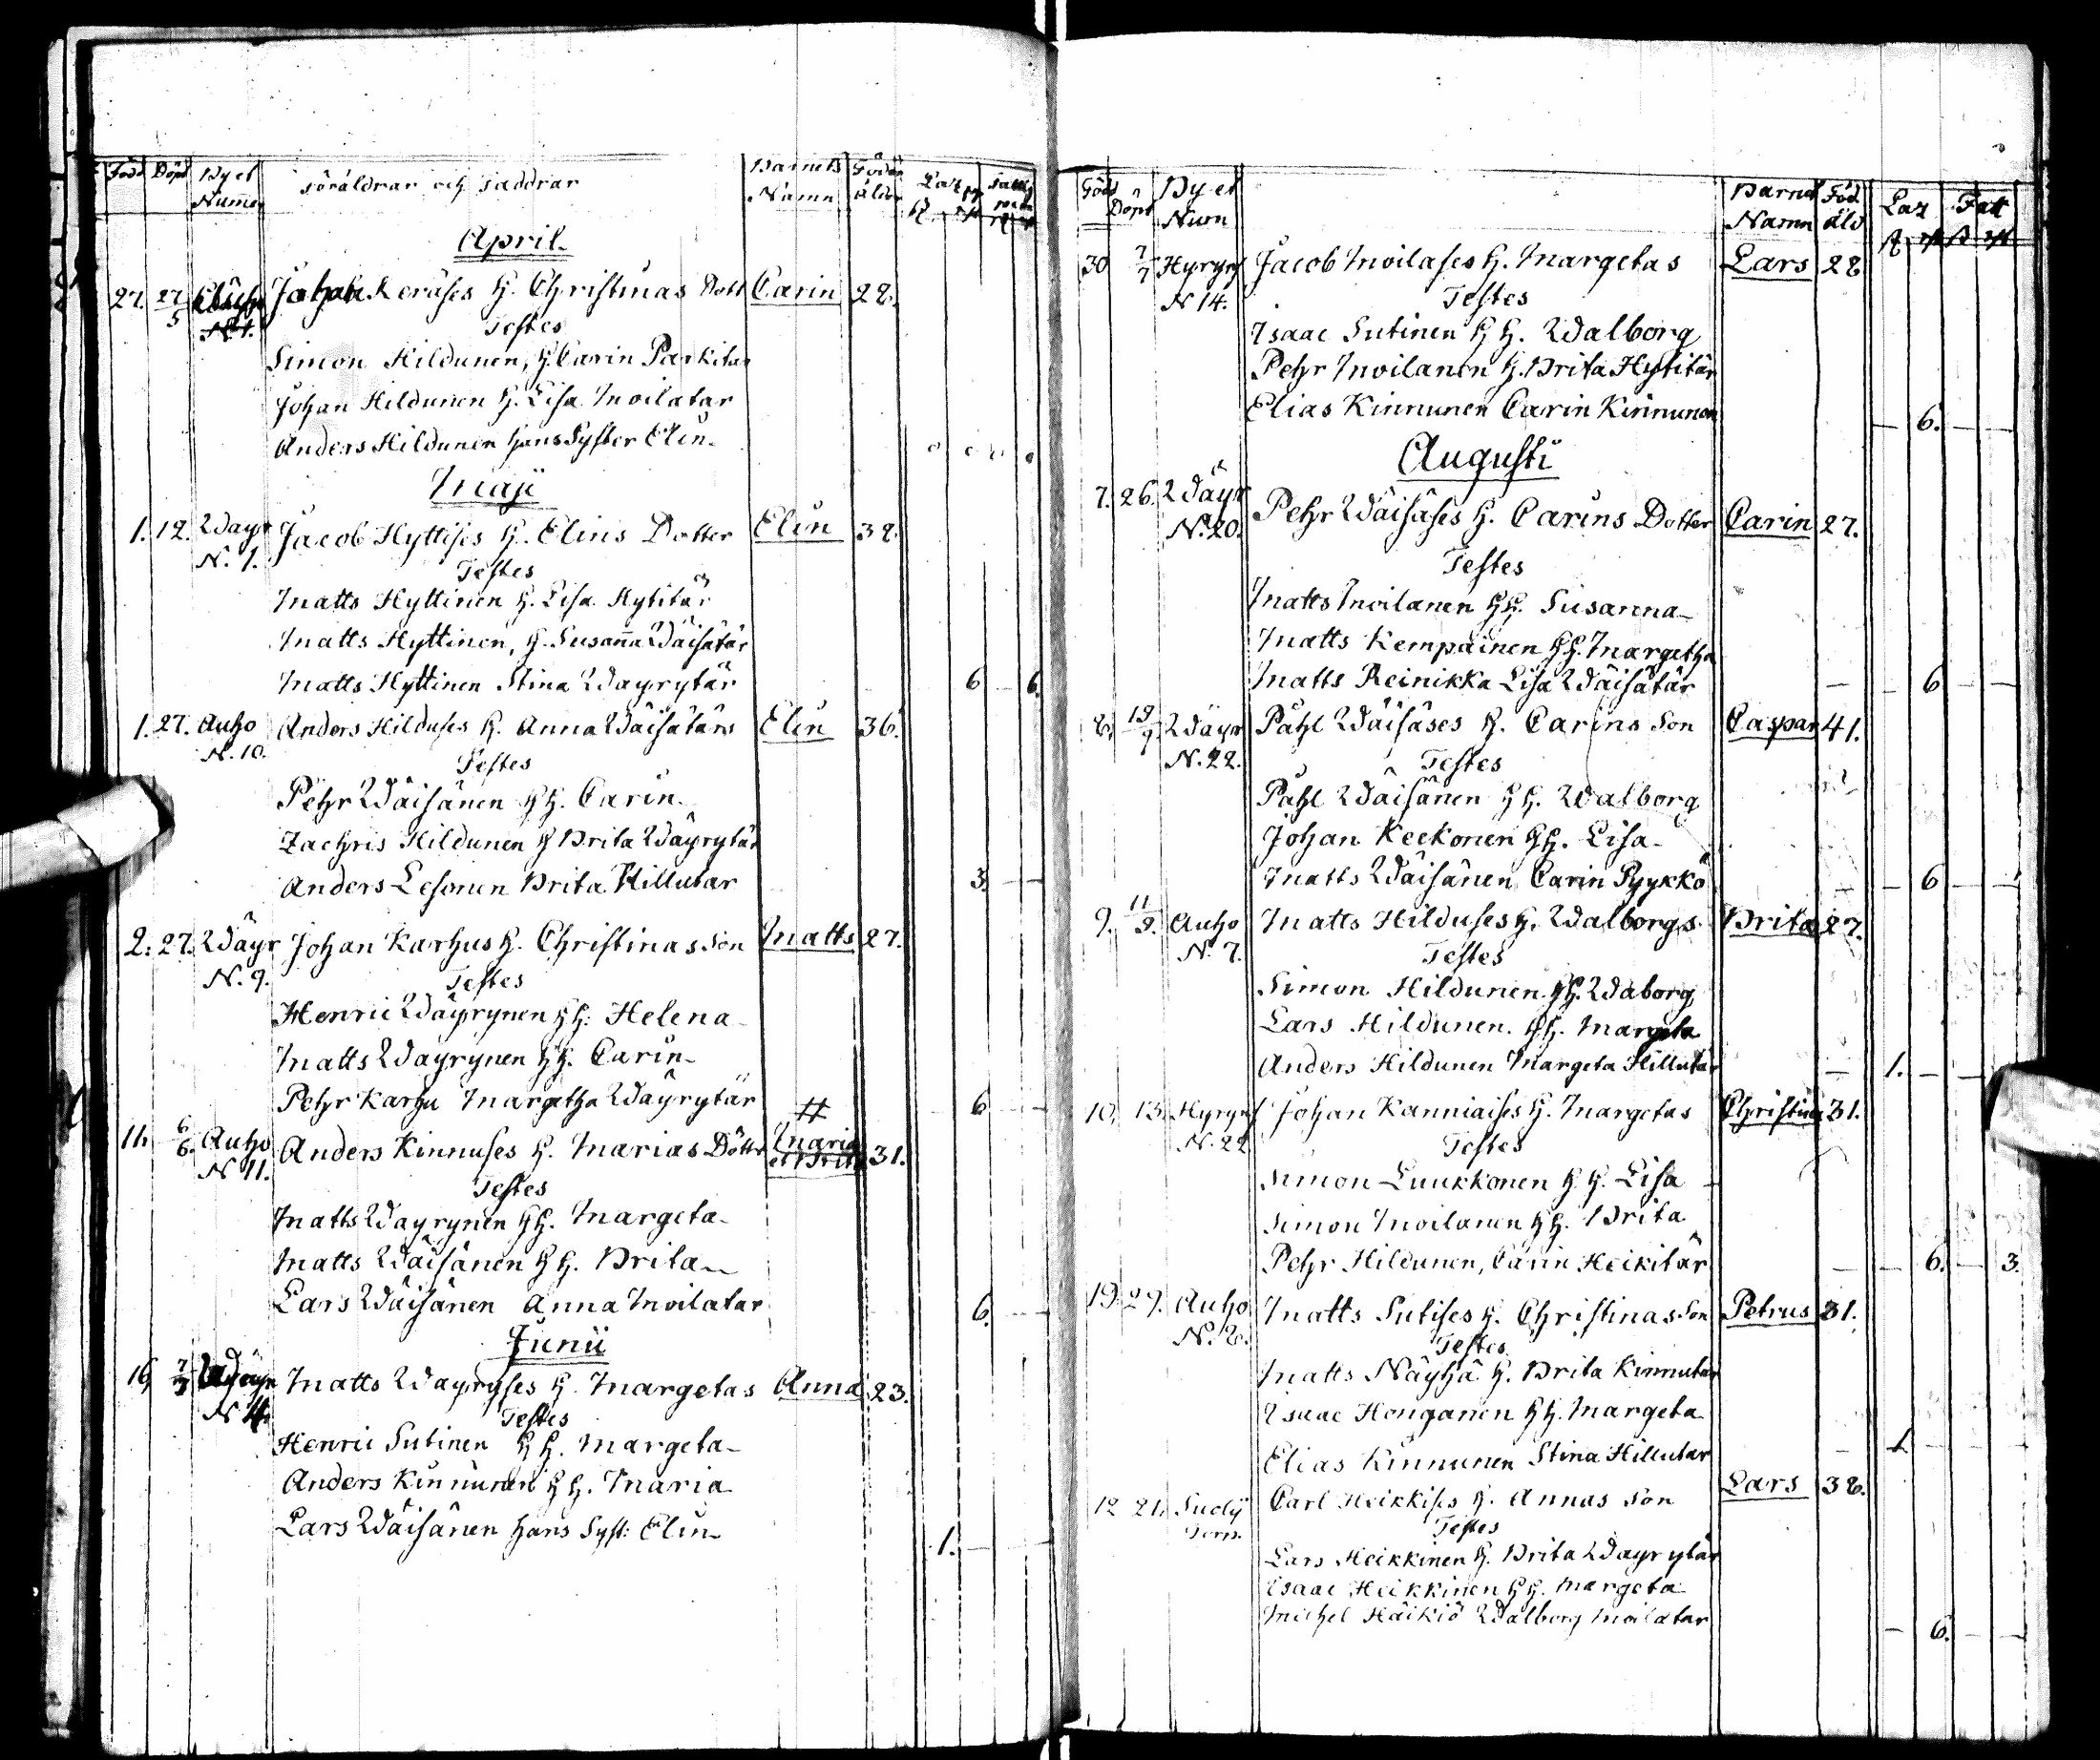 Född Döpt By et Föräldrar och Faddrar Barnets Föder Laz Fatt
Numer Namn ålder
April
27. 27/5 Johan Keräses H. Christinas Dott Carin 28.
N 1. Testes
Simon Hildunen, H. Carin Parkitar
Johan Hildunen H. Lisa Moilatar
Anders Hildunen hans Syster Elin
Maji
1. 12. Wäyr Jacob Hyttises H. Elins Dotter Elin 38.
N. 1. Testes
Matts Hyttinen H. Lisa Hytitär
Matts Hyttinen, H. Susanna Wäisätär
Matts Hyttinen Stina Wäyrytär 6 6.
1. 27. Auho Anders Hilduses H. Anna Wäisätärs Elin 36.
N. 10. Testes
Pehr Wäisänen H H. Carin
Zachris Hildunen H Brita Wäyrytär
Anders Lesonen Brita Hillutar 3.
2. 27. Wäyr Johan Karhus H. Christinas Son Matts 27.
N. 9. Testes
Henric Wäyrynen H H. Helena
Matts Wäyrynen H H. Carin
Pehr Karhu Margetha Wäyrytär 6
11. 6/6. Auho Anders Kinnuses H. Marias Döttr Maria et Brita 31.
N 11. Testes
Matts Wäyrynen H H. Margeta
Matts Wäisänen H H. Brita
Lars Wäisänen Anna Moilatar 6.
Junii
16 7/7 Wäyr Matts Wäyryses H. Margetas Anna 23.
N 4. Testes
Henric Sutinen H H. Margeta
Anders Kinnunen H H. Maria
Lars Wäisänen hans Syst: Elin 1.
Född Döpt By et Barnet Föd Laz Fatt
Num Namn åld
30 7/7 Hyryns Jacob Moilases H. Margetas Lars 28
N 14. Testes
Isaac Sutinen H H. Walborg
Pehr Moilanen H. Brita Hytitär
Elias Kinnunen Carin Kinnunen 6.
Augusti
7. 26. Wäyr Pehr Wäisäses H. Carins Dotter Carin 27.
N. 20. Testes
Matts Moilanen H H. Susanna
Matts Kempainen H H. Margetha
Matts Reinikka Lisa Wäisätär 6
8. 19/9 Wäyr Påhl Wäisäses H. Carins Son Caspar 41.
N. 22. Testes
Påhl Wäisänen H H. Walborg
Johan Keekonen H H. Lisa
Matts Wäisänen Carin Pyykkö 6
9. 11/9. Auho Matts Hilduses H. Walborgs Brita 27.
N. 7. Testes
Simon Hildunen H H. Waborg
Lars Hildunen. H H. Margeta
Anders Hildunen Margeta Hillutar 1.
10. 13. Hyryns Johan Kanniaises H. Margetas Christina 31.
N. 22 Testes
Simon Luukkonen H H. Lisa
Simon Moilanen H H. Brita
Pehr Hildunen, Carin Heikitär 6. 3.
19. 29. Auho Matts Sutises H. Christinas Son Petrus 31.
N. 8. Testes
Matts Näyhä H. Brita Kinnutar
Isaac Honganen H H. Margeta
Elias Kinnunen Stina Hillutar 1
12 21. Carl Heikkises H. Annas Son Lars 38.
Testes
Lars Heikkinen H. Brita Wäyrytär
Isaac Heikkinen H H. Margeta
Michel Häikiö Walborg Moilatar 6.